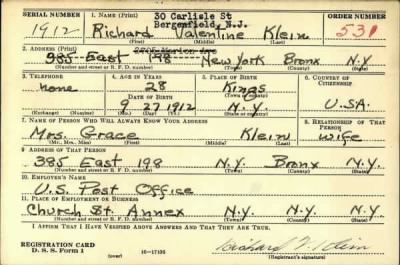 SERIAL NUMBER 1. NAME (Print) 30 Carlisle St ORDER NUMBER
Bergenfield, N.J.
1912 Richard Valentine Klein 531
(First) (Middle) (Last)
2. ADDRESS (Print)
385 East 198 New York Bronx N.Y
(Number and street or R. F. D. number) (Town) (County) (State)
3. TELEPHONE 4. AGE IN YEARS 5. PLACE OF BIRTH 6. COUNTRY OF CITIZENSHIP
none 28 Kings
DATE OF BIRTH (Town or county)
9 27 1912 N.Y. U.S.A.
(Exchange) (Number) (Mo.) (Day) (Yr.) (State or country)
7. NAME OF PERSON WHO WILL ALWAYS KNOW YOUR ADDRESS 8. RELATIONSHIP OF THAT PERSON
Mrs. Grace Klein wife
(Mr., Mrs., Miss) (First) (Middle) (Last)
9. ADDRESS OF THAT PERSON
385 East 198 N.Y. Bronx N.Y.
(Number and street or R. F. D. number) (Town) (County) (State)
10. EMPLOYER'S NAME
U.S. Post Office
11. PLACE OF EMPLOYMENT OR BUSINESS
Church St. Annex N.Y. N.Y. N.Y.
(Number and street or R. F. D. number) (Town) (County) (State)
I AFFIRM THAT I HAVE VERIFIED ABOVE ANSWERS AND THAT THEY ARE TRUE.
REGISTRATION CARD
D. S. S. Form 1 (over) 16-17105 Richard V. Klein
(Registrant's signature)